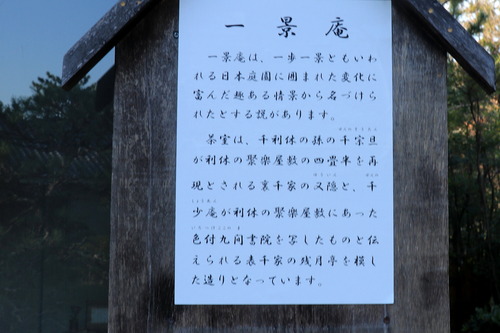 一景庵
一景庵は、一歩一景ともいわ
れる日本庭園に囲まれた変化に
富んだ趣ある情景から名づけら
れたとする説があります。
茶室は、千利休の孫の千宗旦
が利休の聚楽屋敷の四畳半を再
現とされる裏千家の又隠と、千
少庵が利休の聚楽屋敷にあった
色付九間書院を写したものと伝
えられる表千家の残月亭を模し
た造りとなっています。